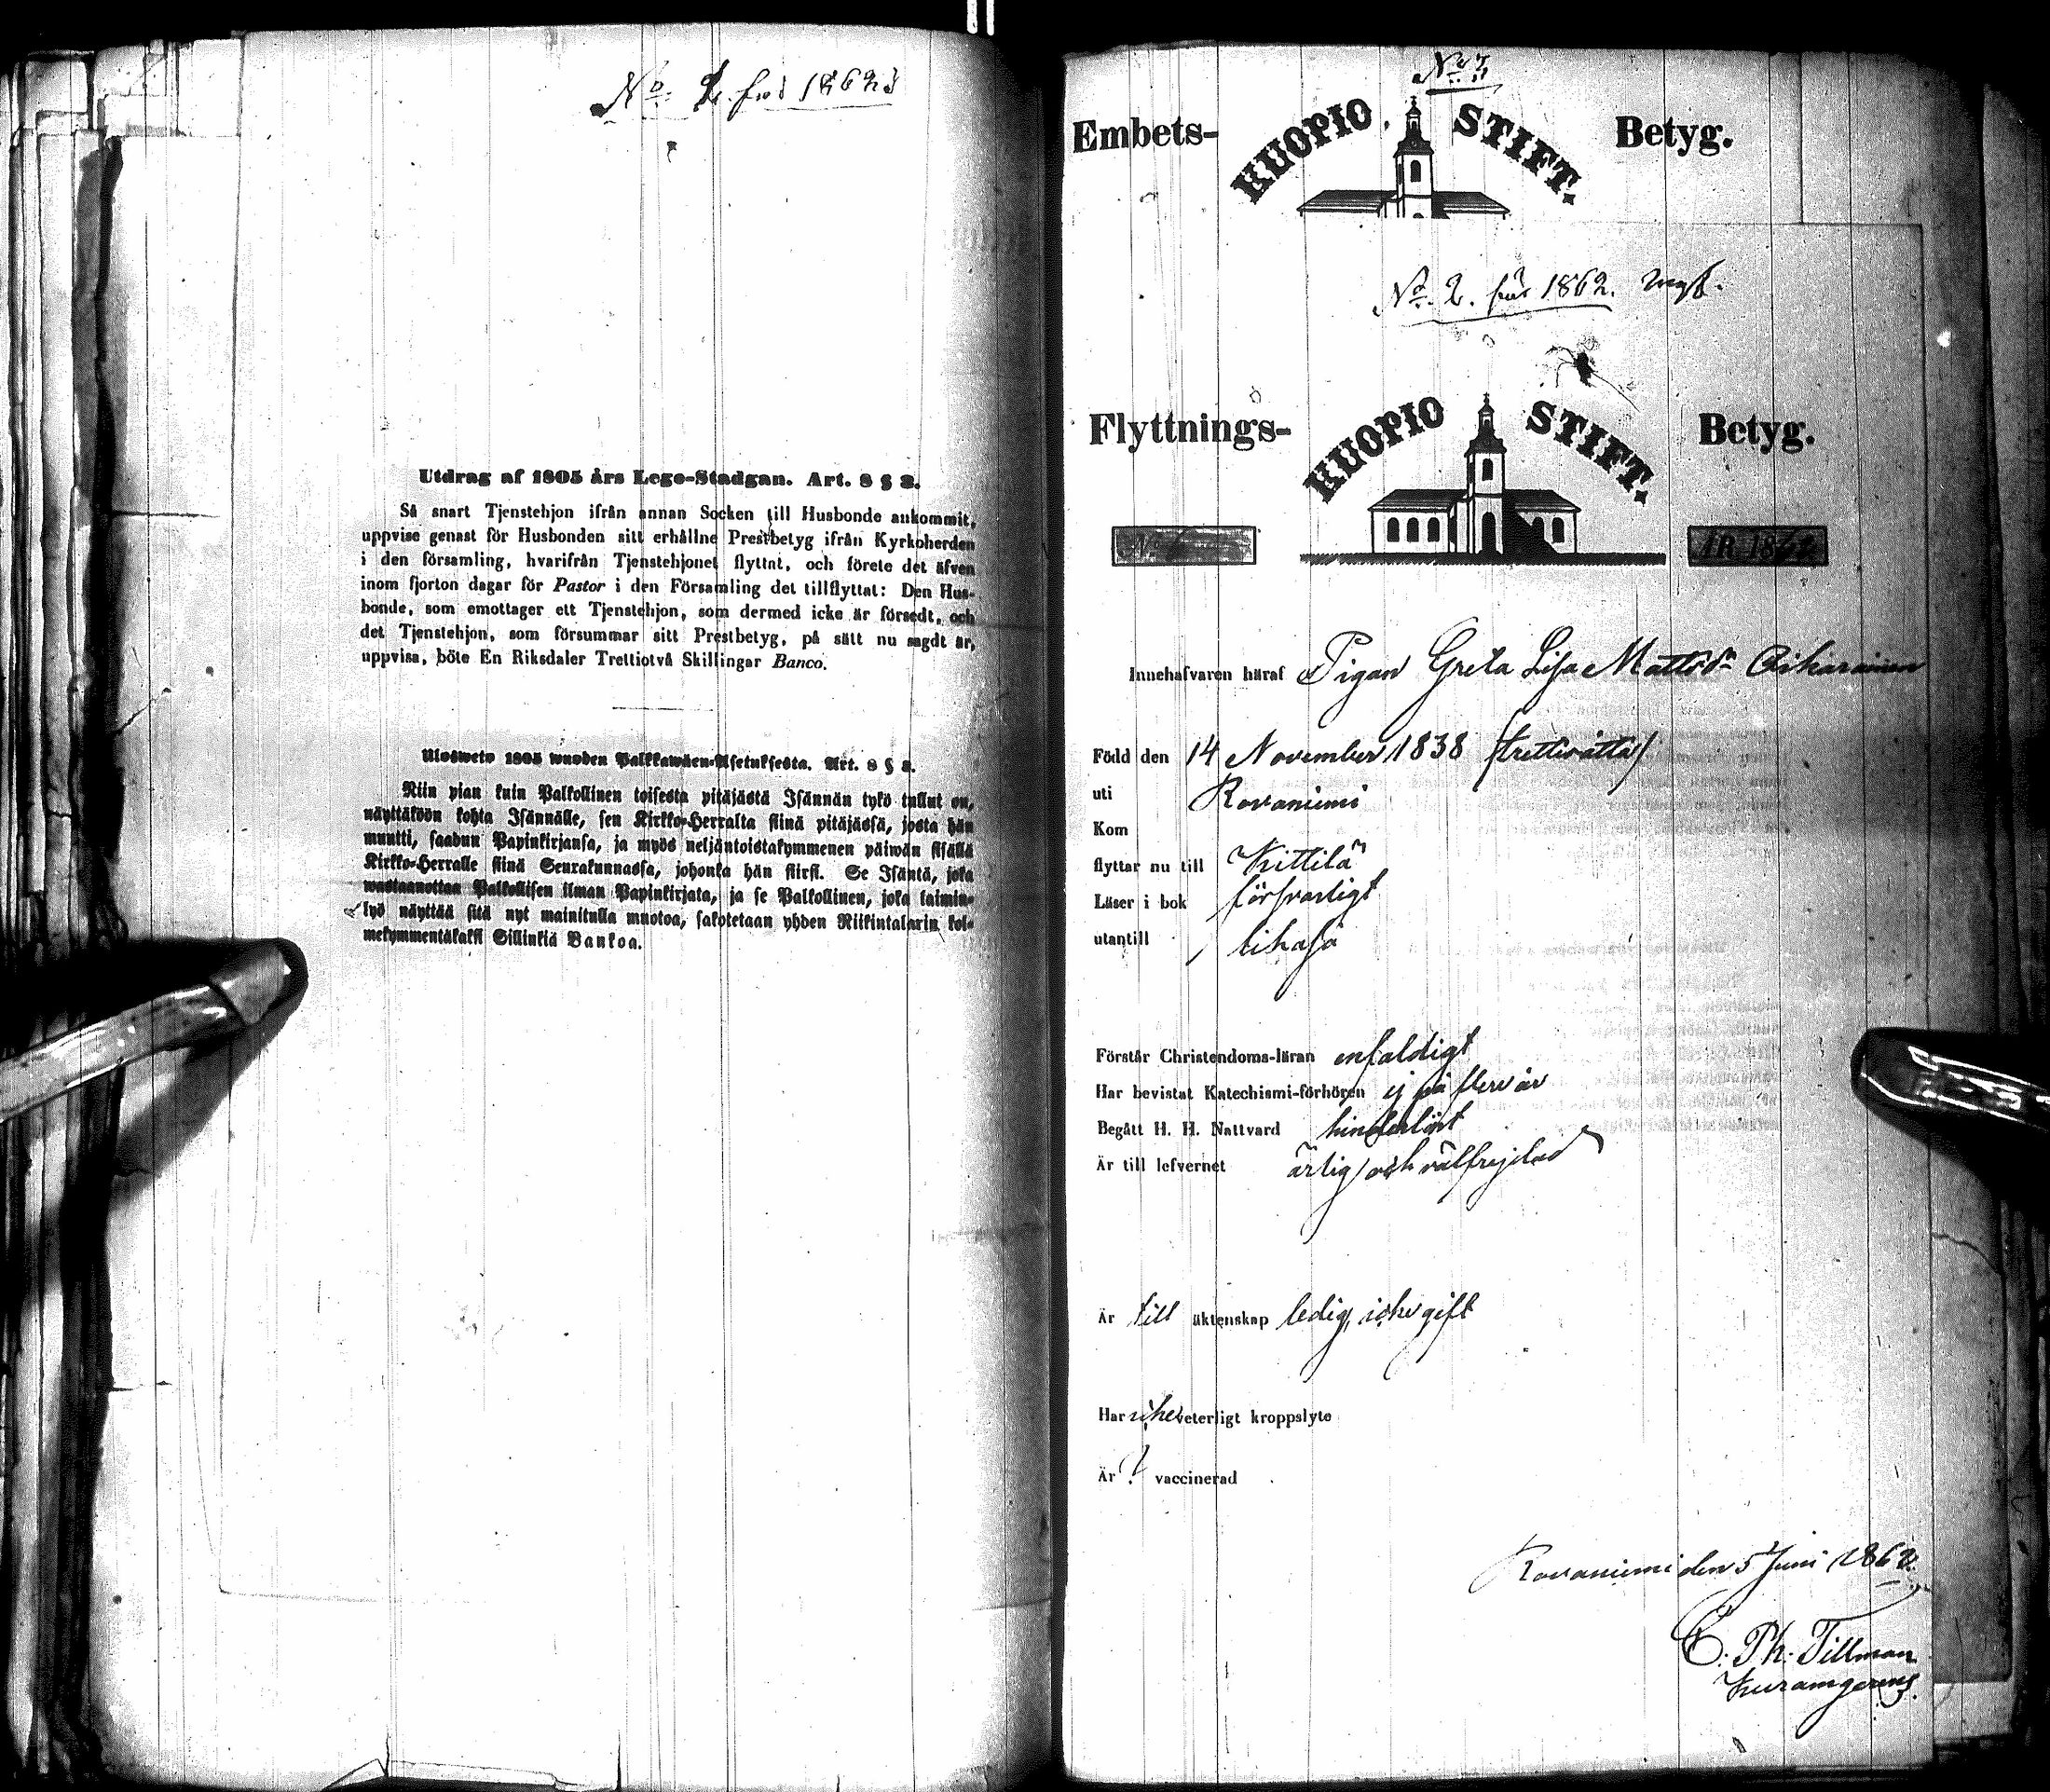 No 2. för 1862
Utdrag af 1805 års Lego-Stadgan. Art. 8 § 3.
Så snart Tjenstehjon ifrån annan Socken till Husbonde ankommit,
uppvise genast för Husbonden sitt erhållne Prestbetyg ifrån Kyrkoherden
i den församling, hvarifrån Tjenstehjonet flyttat, och förete det äfven
inom fjorton dagar för Pastor i den Församling det tillflyttat: Den Hus-
bonde, som emottager ett Tjenstehjon, som dermed icke är försedt, och
det Tjenstehjon, som försummar sitt Prestbetyg, på sätt nu sagdt är,
uppvisa, böte En Riksdaler Trettiotvå Skillingar Banco.
Ulosweto 1805 wuoden Palkkawäen-Asetuksesta. Art. 8 § 3.
Niin pian kuin Palkollinen toisesta pitäjästä Isännän tykö tullut on,
näyttäköön kohta Isännälle, sen Kirkko-Herralta siinä pitäjässä, josta hän
muutti, saadun Papinkirjansa, ja myös neljäntoistakymmenen päiwän sisällä
Kirkko-Herralle siinä Seurakunnassa, johonka hän siirsi. Se Isäntä, joka
wastaanottaa Palkollisen ilman Papinkirjata, ja se Palkollinen, joka laimin-
lyö näyttää sitä nyt mainitulla muotoa, sakotetaan yhden Riikintalarin kol-
mekymmentäkaksi Sillinkiä Bankoa.
Embets- KUOPIO STIFT. Betyg.
No. 2. för 1862.
Flyttnings- KUOPIO STIFT. Betyg.
ÅR 1862
Innehafvaren häraf Pigan Greta Lisa Mattsdr
Född den 14 November 1838 (trettioåtta)
uti Rovaniemi
Kom
flyttar nu till Kittilä
Läser i bok försvarligt
utantill likaså
Förstår Christendoms-läran enfaldigt
Har bevistat Katechismi-förhören ej på flere år
Begått H. H. Nattvard hinderlöst
Är till lefvernet ärlig och välfrejdad
Är till äktenskap ledig, icke gift
Har icke veterligt kroppslyte
Är ? vaccinerad
Rovaniemi den 5 Juni 1862.
C. Ph. Tillman